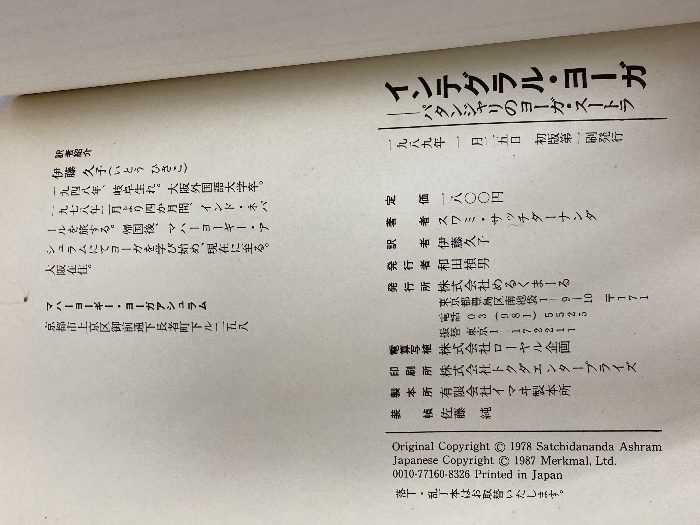 インテグラル・ヨーガ
──パタンジャリのヨーガ・スートラ
一九八九年 一月二五日 初版第一刷発行
定価 一八〇〇円
著者 スワミ・サッチダーナンダ
訳者 伊藤久子
発行者 和田禎男
発行所 株式会社めるくまーる
東京都豊島区南池袋1-9-10 〒171
電話 03(981)5525
振替 東京1-172211
電算写植 株式会社ローヤル企画
印刷所 株式会社トクダエンタープライズ
製本所 有限会社イマヰ製本所
装幀 佐藤 純
Original Copyright © 1978 Satchidananda Ashram
Japanese Copyright © 1987 Merkmal, Ltd.
0010-77160-8326 Printed in Japan
落丁・乱丁本はお取替いたします。
訳者紹介
伊藤 久子(いとう ひさこ)
一九四八年、岐阜生れ。大阪外国語大学卒。
一九七八年二月より四か月間、インド・ネパ
ールを旅する。帰国後、マハーヨーギー・ア
シュラムにてヨーガを学び始め、現在に至る。
大阪在住。
マハーヨーギー・ヨーガアシュラム
京都市上京区御前通下長者町下ル二五八